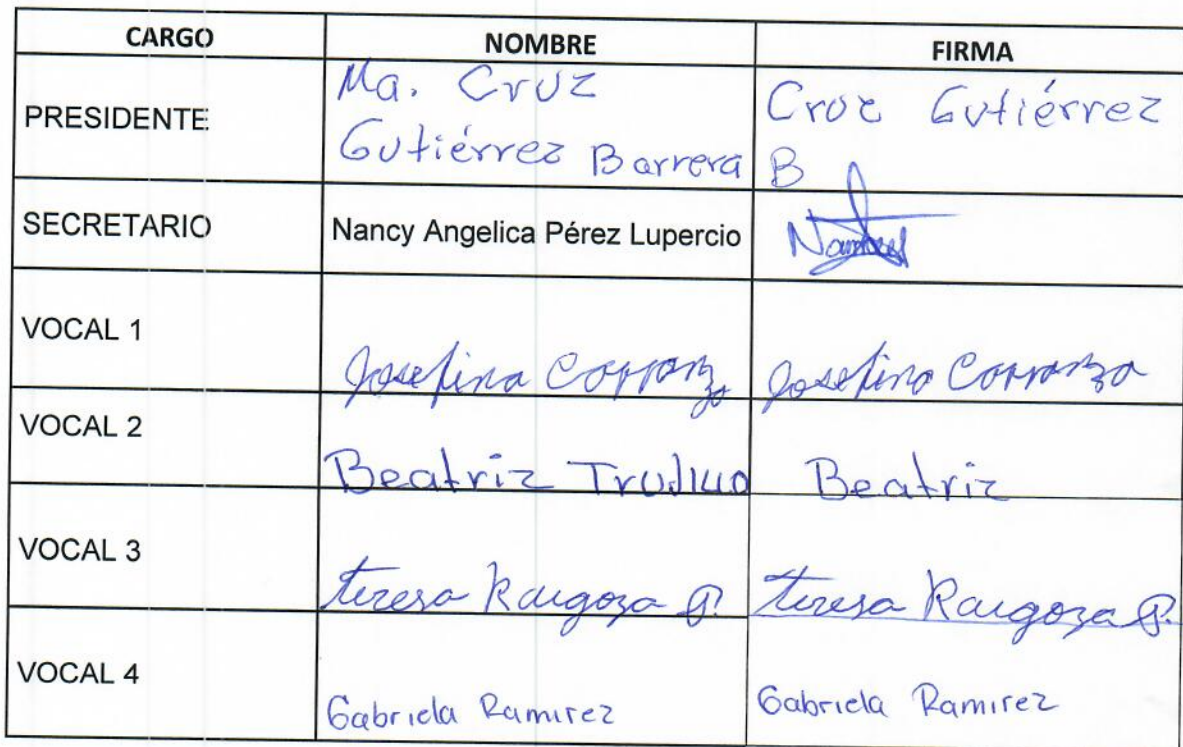 CARGO NOMBRE FIRMA
PRESIDENTE Ma. Cruz Gutiérrez Barrera Cruz Gutiérrez B
SECRETARIO Nancy Angelica Pérez Lupercio
VOCAL 1 Josefina Carranza Josefina Carranza
VOCAL 2 Beatriz Trujillo Beatriz
VOCAL 3 Teresa Raigoza P. Teresa Raigoza P.
VOCAL 4 Gabriela Ramirez Gabriela Ramirez